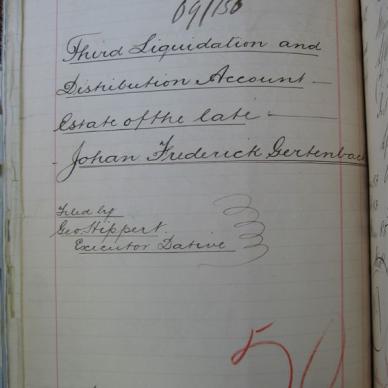 09/150
Third Liquidation and
Distribution Account —
Estate of the late —
Johan Frederick Gertenbach
Filed by
Geo Hippert.
Executor Dative